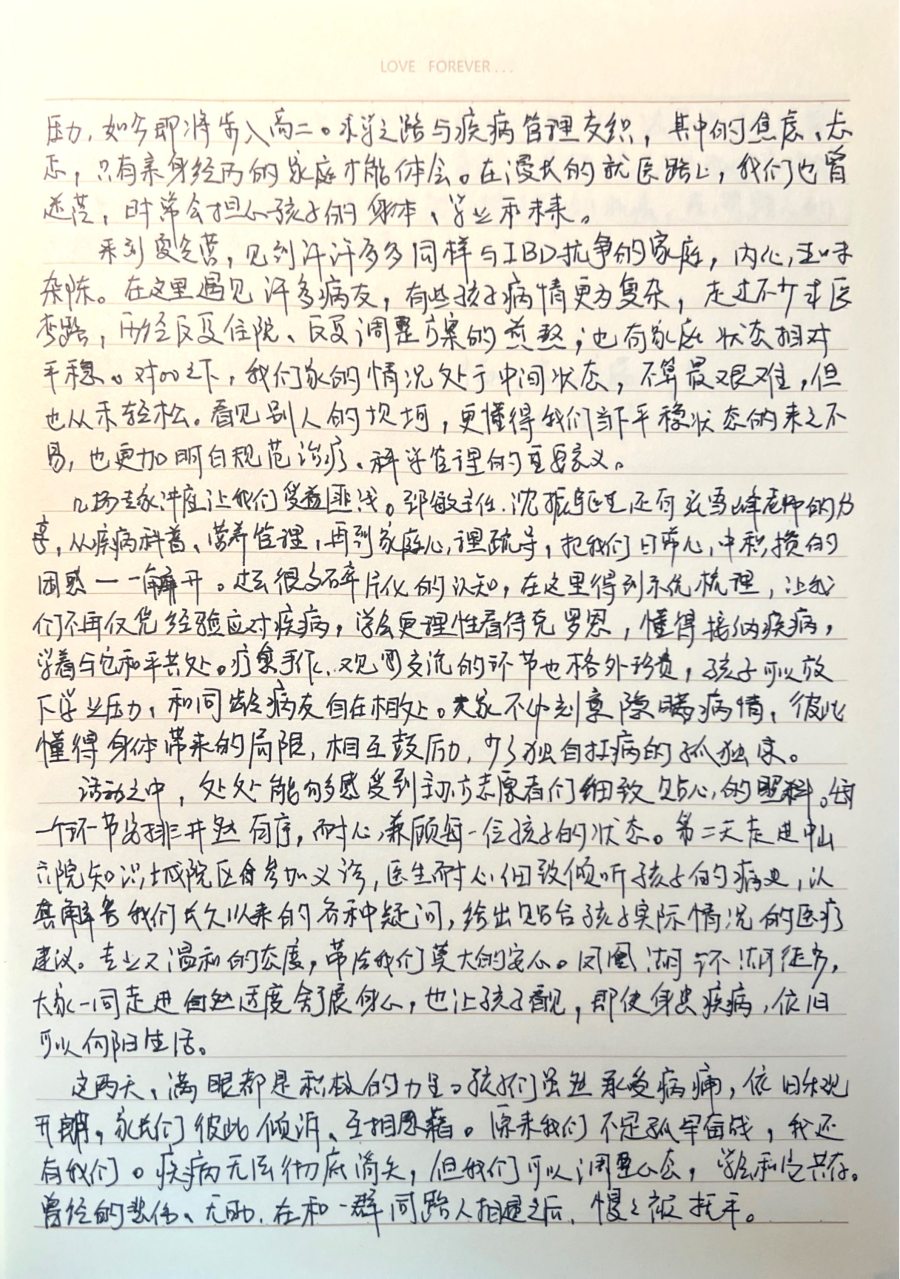 LOVE FOREVER...
压力，如今即将步入高二。求学之路与疾病管理交织，其中的焦虑、忐
忑，只有亲身经历的家庭才能体会。在漫长的就医路上，我们也曾
迷茫，时常会担心孩子的身体、学业和未来。
来到夏令营，见到许许多多同样与IBD抗争的家庭，内心五味
杂陈。在这里遇见许多病友，有些孩子病情更为复杂，走过不少求医
弯路，历经反复住院、反复调整方案的煎熬；也有家庭状态相对
平稳。对比之下，我们家的情况处于中间状态，不算最艰难，但
也从未轻松。看见别人的坎坷，更懂得我们当下平稳状态的来之不
易，也更加明白规范治疗、科学管理的重要意义。
几场专家讲座让我们受益匪浅。郅敏主任、沈振医生还有老师的分
享，从疾病科普、营养管理，再到家庭心理疏导，把我们日常心中积攒的
困惑一一解开。过去很多碎片化的认知，在这里得到系统梳理，让我
们不再仅凭经验应对疾病，学会更理性看待克罗恩，懂得接纳疾病，
学着与它和平共处。疗愈手作、观影交流的环节也格外珍贵，孩子可以放
下学业压力，和同龄病友自在相处。大家不必刻意隐瞒病情，彼此
懂得身体带来的局限，相互鼓励，少了独自扛病的孤独感。
活动之中，处处能够感受到主办方志愿者们细致贴心的照料。每
一个环节安排井然有序，耐心兼顾每一位孩子的状态。第二天走进中山
六院知识城院区参加义诊，医生耐心细致倾听孩子的病史，认
真解答我们长久以来的各种疑问，给出贴合孩子实际情况的医疗
建议。专业又温和的态度，带给我们莫大的安心。凤凰湖环湖徒步，
大家一同走进自然适度舒展身心，也让孩子看见，即使身患疾病，依旧
可以向阳生活。
这两天，满眼都是积极的力量。孩子们虽然承受病痛，依旧乐观
开朗，家长们彼此倾诉、互相慰藉。原来我们不是孤军奋战，我还
有我们。疾病无法彻底消失，但我们可以调整心态，学会和它共存。
曾经的悲伤、无助，在和一群同路人相遇之后，慢慢被抚平。